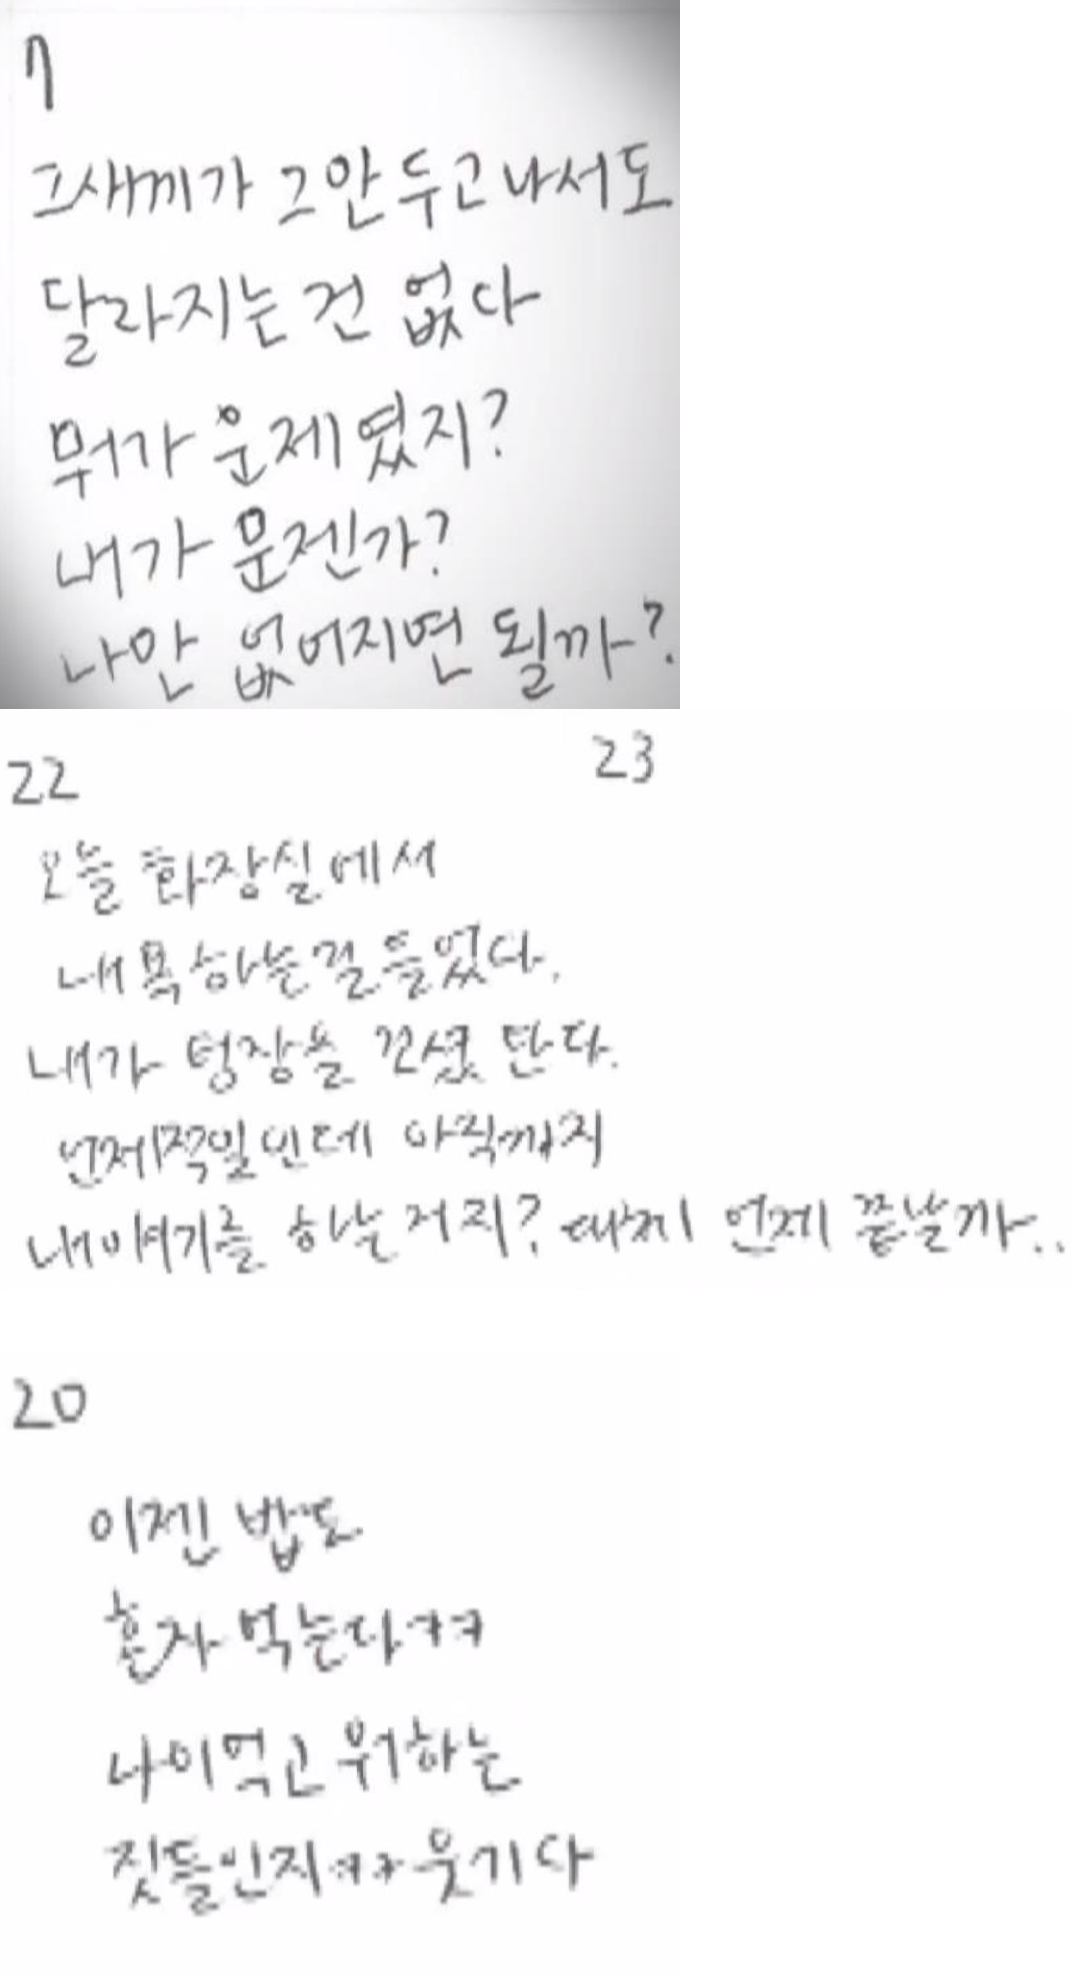 7
그새끼가 그만두고 나서도
달라지는 건 없다
뭐가 문제였지?
내가 문젠가?
나만 없어지면 될까?
22
23
오늘 화장실에서
내 욕하는걸 들었다.
내가 팀장을 꼬셨 단다.
언제적일인데 아직까지
내 얘기를 하는거지? 대체 언제 끝날까..
20
이젠 밥도
혼자 먹는다ㅋㅋ
나이먹고 뭐하는
짓들인지ㅋㅋ 웃기다